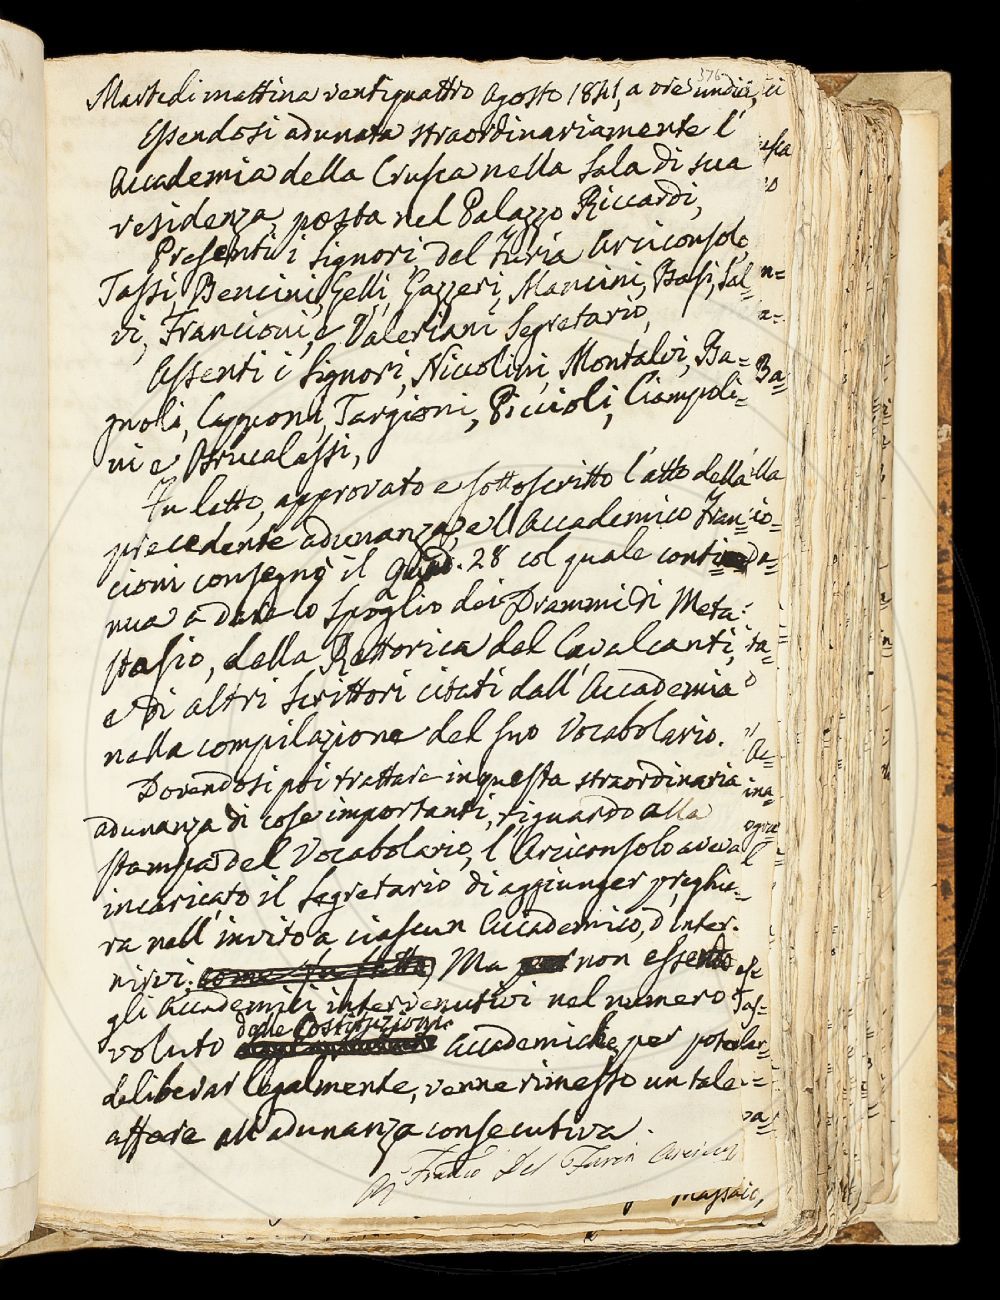 376
Martedi mattina ventiquattro Agosto 1841, a ore undici,
Essendosi adunata straordinariamente l'
Accademia della Crusca nella Sala di sua
residenza, posta nel Palazzo Riccardi,
Presenti i Signori del Furia Arciconsolo,
Tassi, Bencini, Gelli, Gazzeri, Mancini, Basi, Sal=
vi, Francioni, e Valeriani Segretario,
Assenti i Signori, Niccolini, Montalvi, Ba=
gnoli, Capponi, Targioni, Piccioli, Ciampoli=
ni e Brucalassi,
Fu letto, approvato e sottoscritto l'atto della
precedente adunanza, e l'Accademico Fran=
cioni consegnò il Quad. 28 col quale conti=
nua a dare lo Spoglio dei Drammi di Meta=
stasio, della Rettorica del Cavalcanti,
e di altri Scrittori citati dall'Accademia
nella compilazione del suo Vocabolario.
Dovendosi poi trattare in questa straordinaria
adunanza di cose importanti, riguardo alla
stampa del Vocabolario, l'Arciconsolo aveva
incaricato il Segretario di aggiunger preghie=
ra nell'invito a ciascun Accademico, d'inter=
nirvi; come fu fatto, Ma non essendo
gli Accademici intervenutivi nel numero
voluto dalle Costituzioni Accademiche, per poter
deliberar legalmente, venne rimesso un tale
affare all'adunanza consecutiva.
Franco Del Furia Arcicons